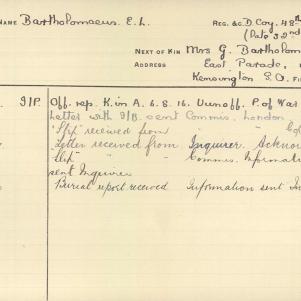 NAME Bartholomaeus. E. L. REG. &c. D. Coy. 48
(Late 32nd
NEXT OF KIN Mrs G. Barthol
ADDRESS East Parade,
Kensington S.O.
I/P. Off. rep. K. in A. 6.8.16. Unoff. P. of War
Letter with I/B. sent Commis. London
"Slip" received from " "
Letter received from Inquirer. Acknow
Slip " " Commis. Informati
sent Inquirer
Burial report received Information sent In